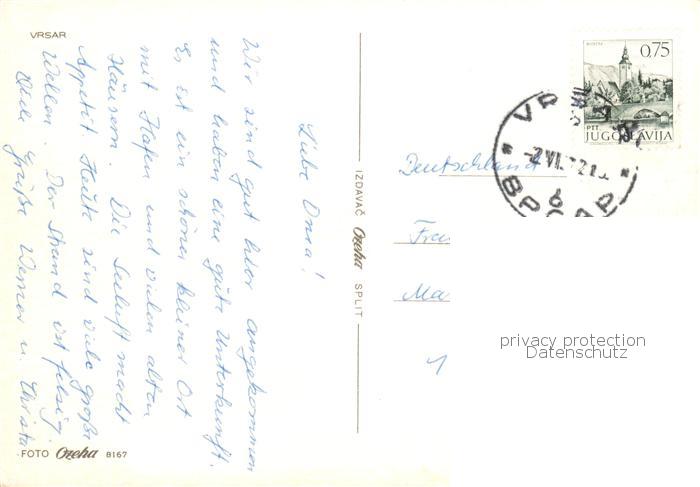 VRSAR
Liebe Oma!
Wir sind gut hier angekommen
und haben eine gute Unterkunft.
Es ist ein schöner kleiner Ort
mit Hafen und vielen alten
Häusern. Die Seeluft macht
Appetit. Heute sind viele große
Wellen. Der Strand ist felsig.
Viele Grüße Werner u. Christa
FOTO Ozeha 8167
IZDAVAČ Ozeha SPLIT
0,75
PTT
JUGOSLAVIJA
Deutschland
Frau
Ma
1
privacy protection
Datenschutz